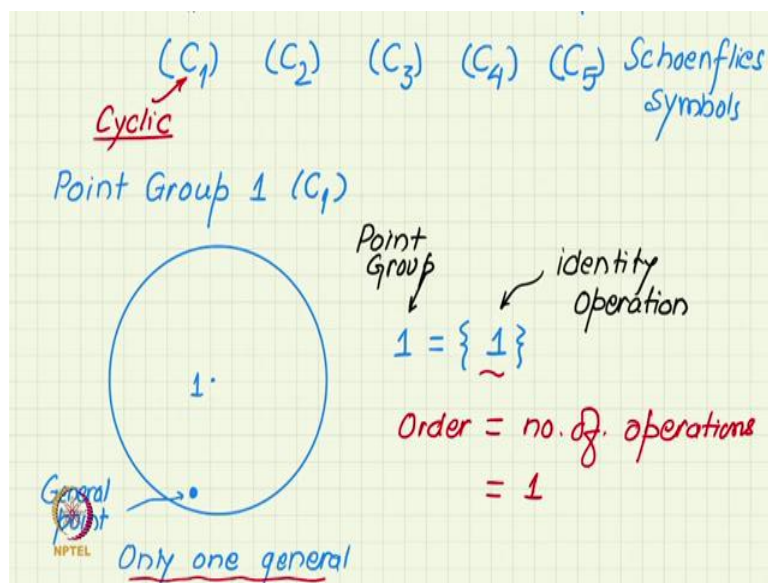 (C₁) (C₂) (C₃) (C₄) (C₅) Schoenflies
Symbols
Cyclic
Point Group 1 (C₁)
Point
Group
identity
operation
1 = { 1 }
1
Order = no. of. operations
= 1
General
point
NPTEL
Only one general